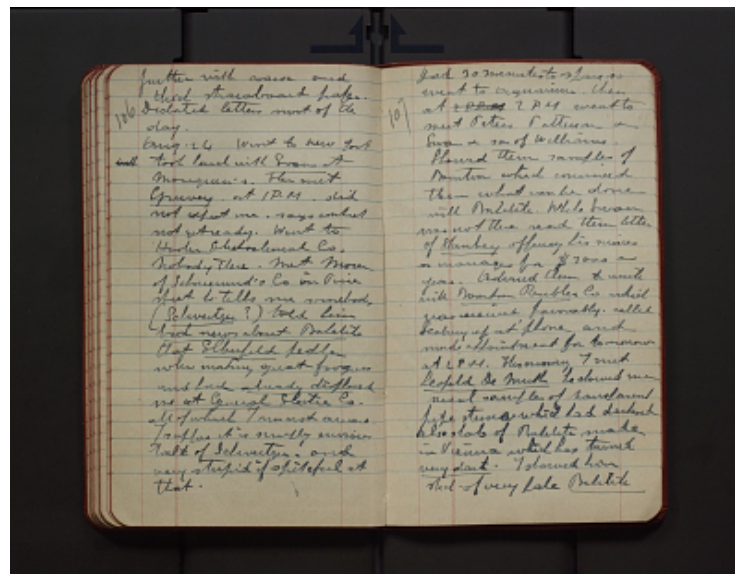 further with
third strawboard
106 Dictated letters most of the
day.
Aug. 24 Went to New York
took lunch with Swan at
Then met
at 1 P.M. did
not expect me. says contract
not yet ready. Went to
Hooker Electrochemical Co.
Nobody there. Met
of Co in Pine
street he tells me somebody
(Schweitzer?) told him
bad news about Bakelite
that Elberfeld fellows
were making great progress
and had already displaced
me at General Electric Co.
all of which I am not aware
I suppose it is mostly envious
talk of Schweitzer. and
very stupid if spiteful at
that.
107
had 30 minutes to spare so
went to aquarium. then
at 2 P.M. went to
meet Peters Patterson
Swan & son of Williams.
Showed them samples of
which convinced
them what can be done
with Bakelite. While Swan
was not there read them letter
of offering his services
as manager for $3000 a
year. them to unite
with Boonton Rubber Co. which
was received favorably. called
up at phone and
made appointment for tomorrow
at 2 P.M. This morning I met
Leopold De he showed me
samples of
pipe stems which had
also slab of Bakelite made
in Vienna which has turned
very dark. I showed him
rod of very pale Bakelite